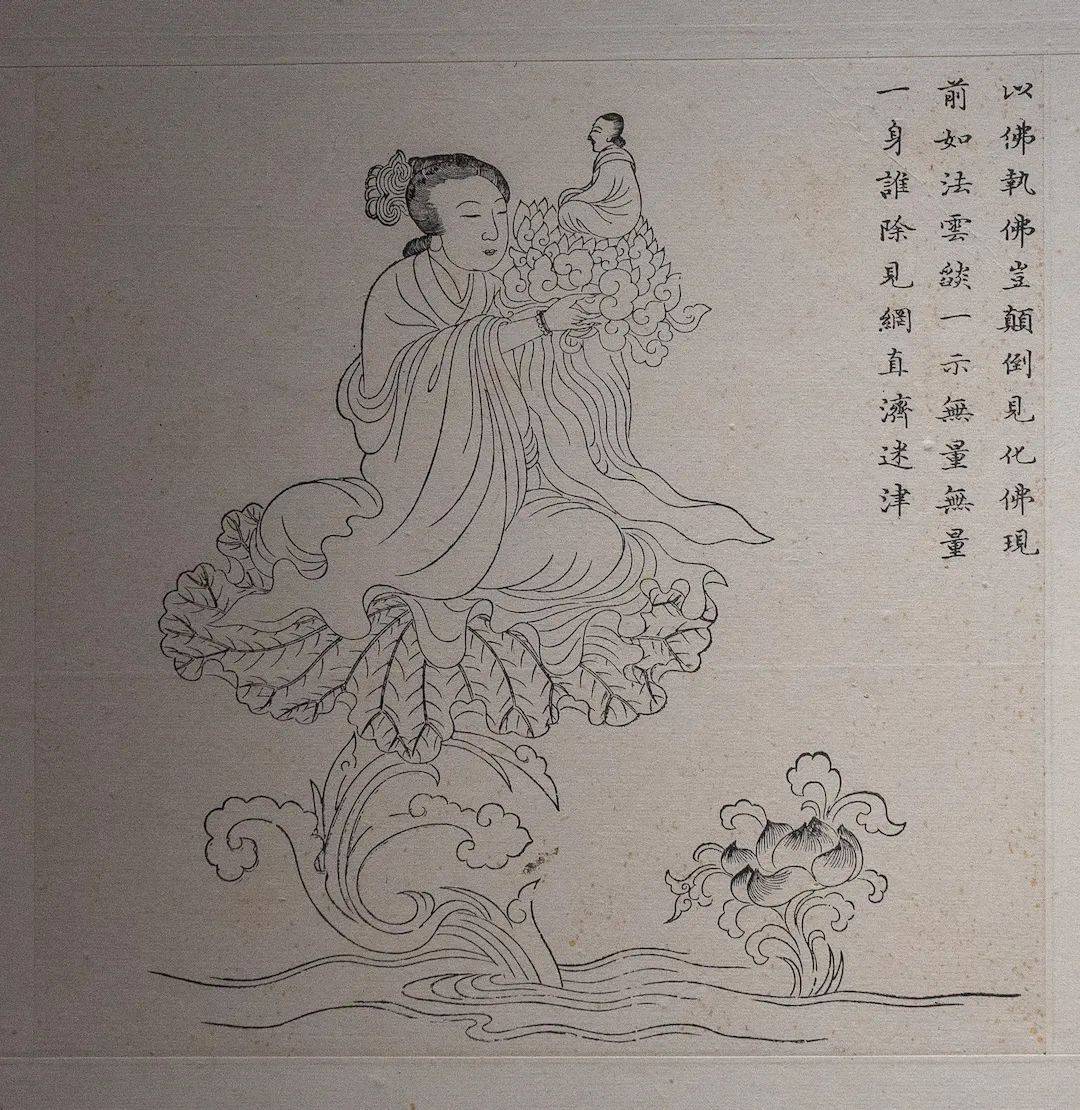 以佛執佛豈顛倒見化佛現
前如法雲燄一示無量無量
一身誰除見網直濟迷津